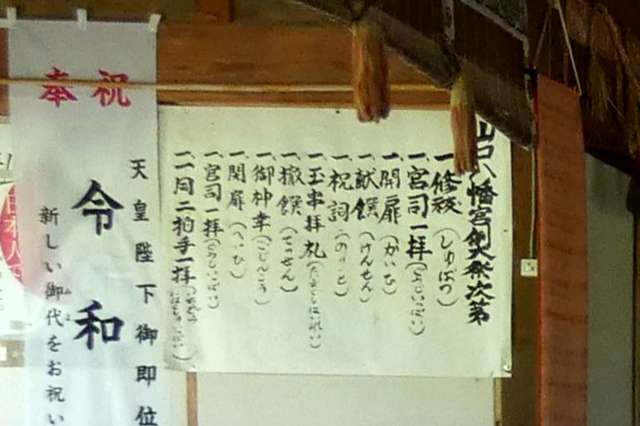 山口八幡宮例大祭次第
一、修祓(しゅばつ)
一、宮司一拝(ぐうじいっぱい)
一、開扉(かいひ)
一、献饌(けんせん)
一、祝詞(のりと)
一、玉串拝礼(たまぐしはいれい)
一、撤饌(てっせん)
一、御神幸(ごじんこう)
一、閉扉(へいひ)
一、宮司一拝(ぐうじいっぱい)
一、一同二拍手一拝
祝
奉
天皇陛下御即位
令和
新しい御代をお祝い
日本人